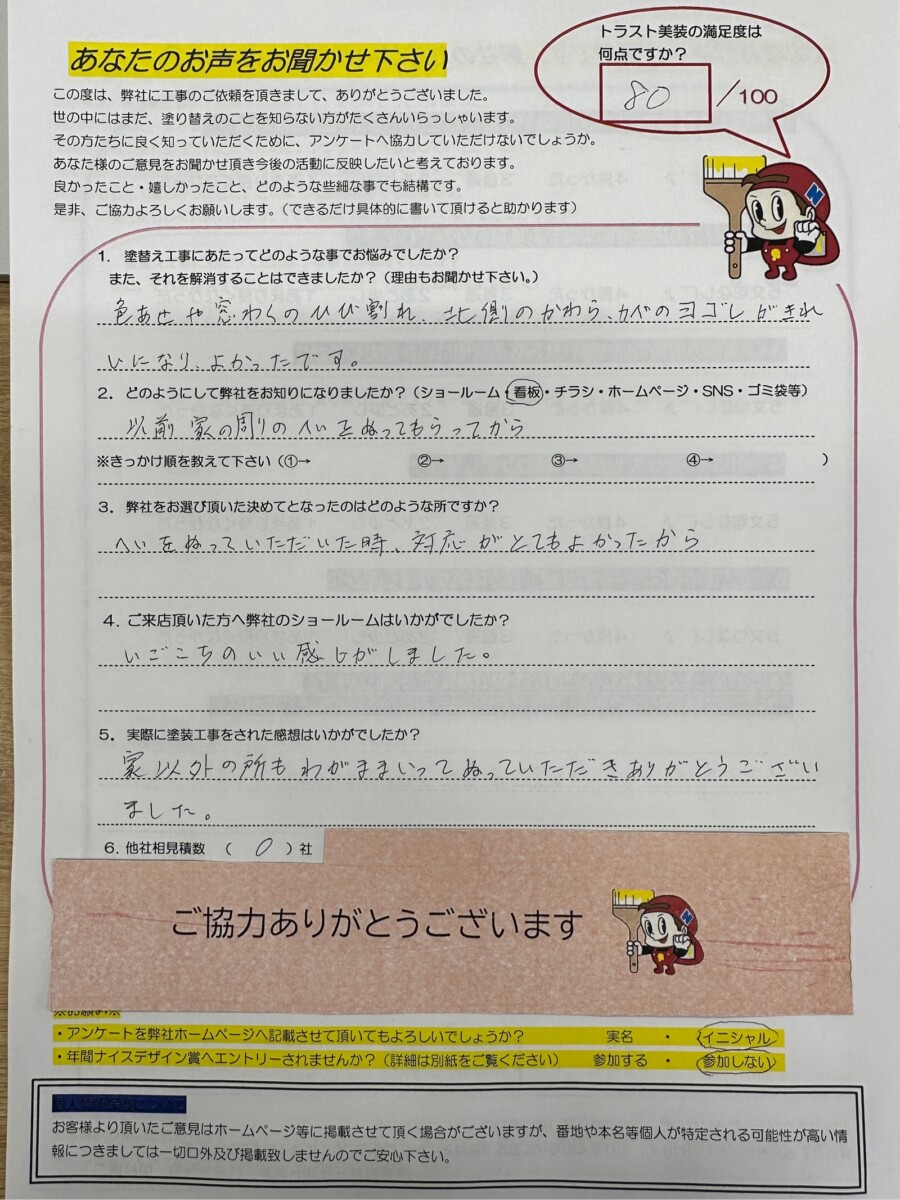 あなたのお声をお聞かせ下さい
トラスト美装の満足度は
何点ですか？
80／100
この度は、弊社に工事のご依頼を頂きまして、ありがとうございました。
世の中にはまだ、塗り替えのことを知らない方がたくさんいらっしゃいます。
その方たちに良く知っていただくために、アンケートへ協力していただけないでしょうか。
あなた様のご意見をお聞かせ頂き今後の活動に反映したいと考えております。
良かったこと・嬉しかったこと、どのような些細な事でも結構です。
是非、ご協力よろしくお願いします。（できるだけ具体的に書いて頂けると助かります）
N
1. 塗替え工事にあたってどのような事でお悩みでしたか？
また、それを解消することはできましたか？（理由もお聞かせ下さい。）
色あせや窓わくのひび割れ、北側のかわら、カベのヨゴレがきれ
いになり、よかったです。
2. どのようにして弊社をお知りになりましたか？（ショールーム・看板・チラシ・ホームページ・SNS・ゴミ袋等）
以前家の周りのへいをぬってもらってから
※きっかけ順を教えて下さい（①→ ②→ ③→ ④→ ）
3. 弊社をお選び頂いた決めてとなったのはどのような所ですか？
へいをぬっていただいた時、対応がとてもよかったから
4. ご来店頂いた方へ弊社のショールームはいかがでしたか？
いごこちのいい感じがしました。
5. 実際に塗装工事をされた感想はいかがでしたか？
家以外の所もわがままいってぬっていただきありがとうござい
ました。
6. 他社相見積数 （ 0 ）社
ご協力ありがとうございます
N
※お願い※
・アンケートを弊社ホームページへ記載させて頂いてもよろしいでしょうか？ 実名 ・ イニシャル
・年間ナイスデザイン賞へエントリーされませんか？（詳細は別紙をご覧ください） 参加する ・ 参加しない
お客様より頂いたご意見はホームページ等に掲載させて頂く場合がございますが、番地や本名等個人が特定される可能性が高い情
報につきましては一切口外及び掲載致しませんのでご安心下さい。